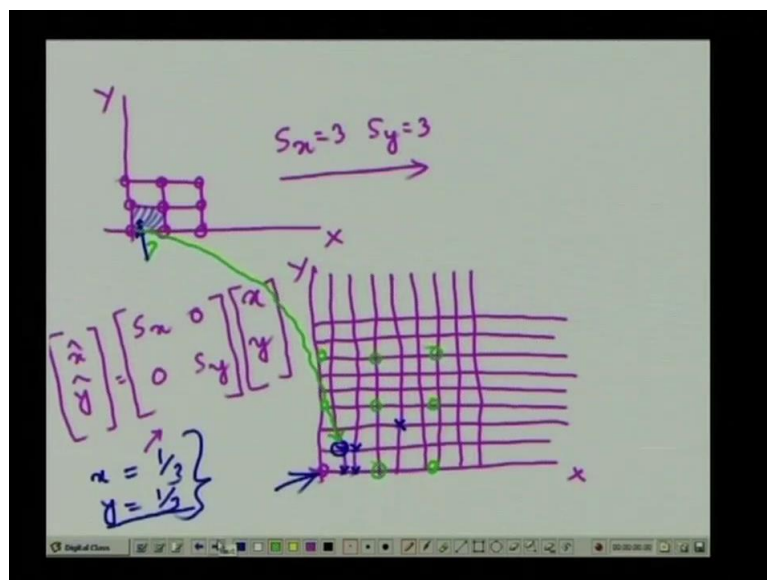 Y
Sx=3 Sy=3
X
Y
[x̂ ŷ] = [Sx 0 0 Sy] [x y]
x = 1/3
y = 1/3
X
Digital Class
00:00:00:00